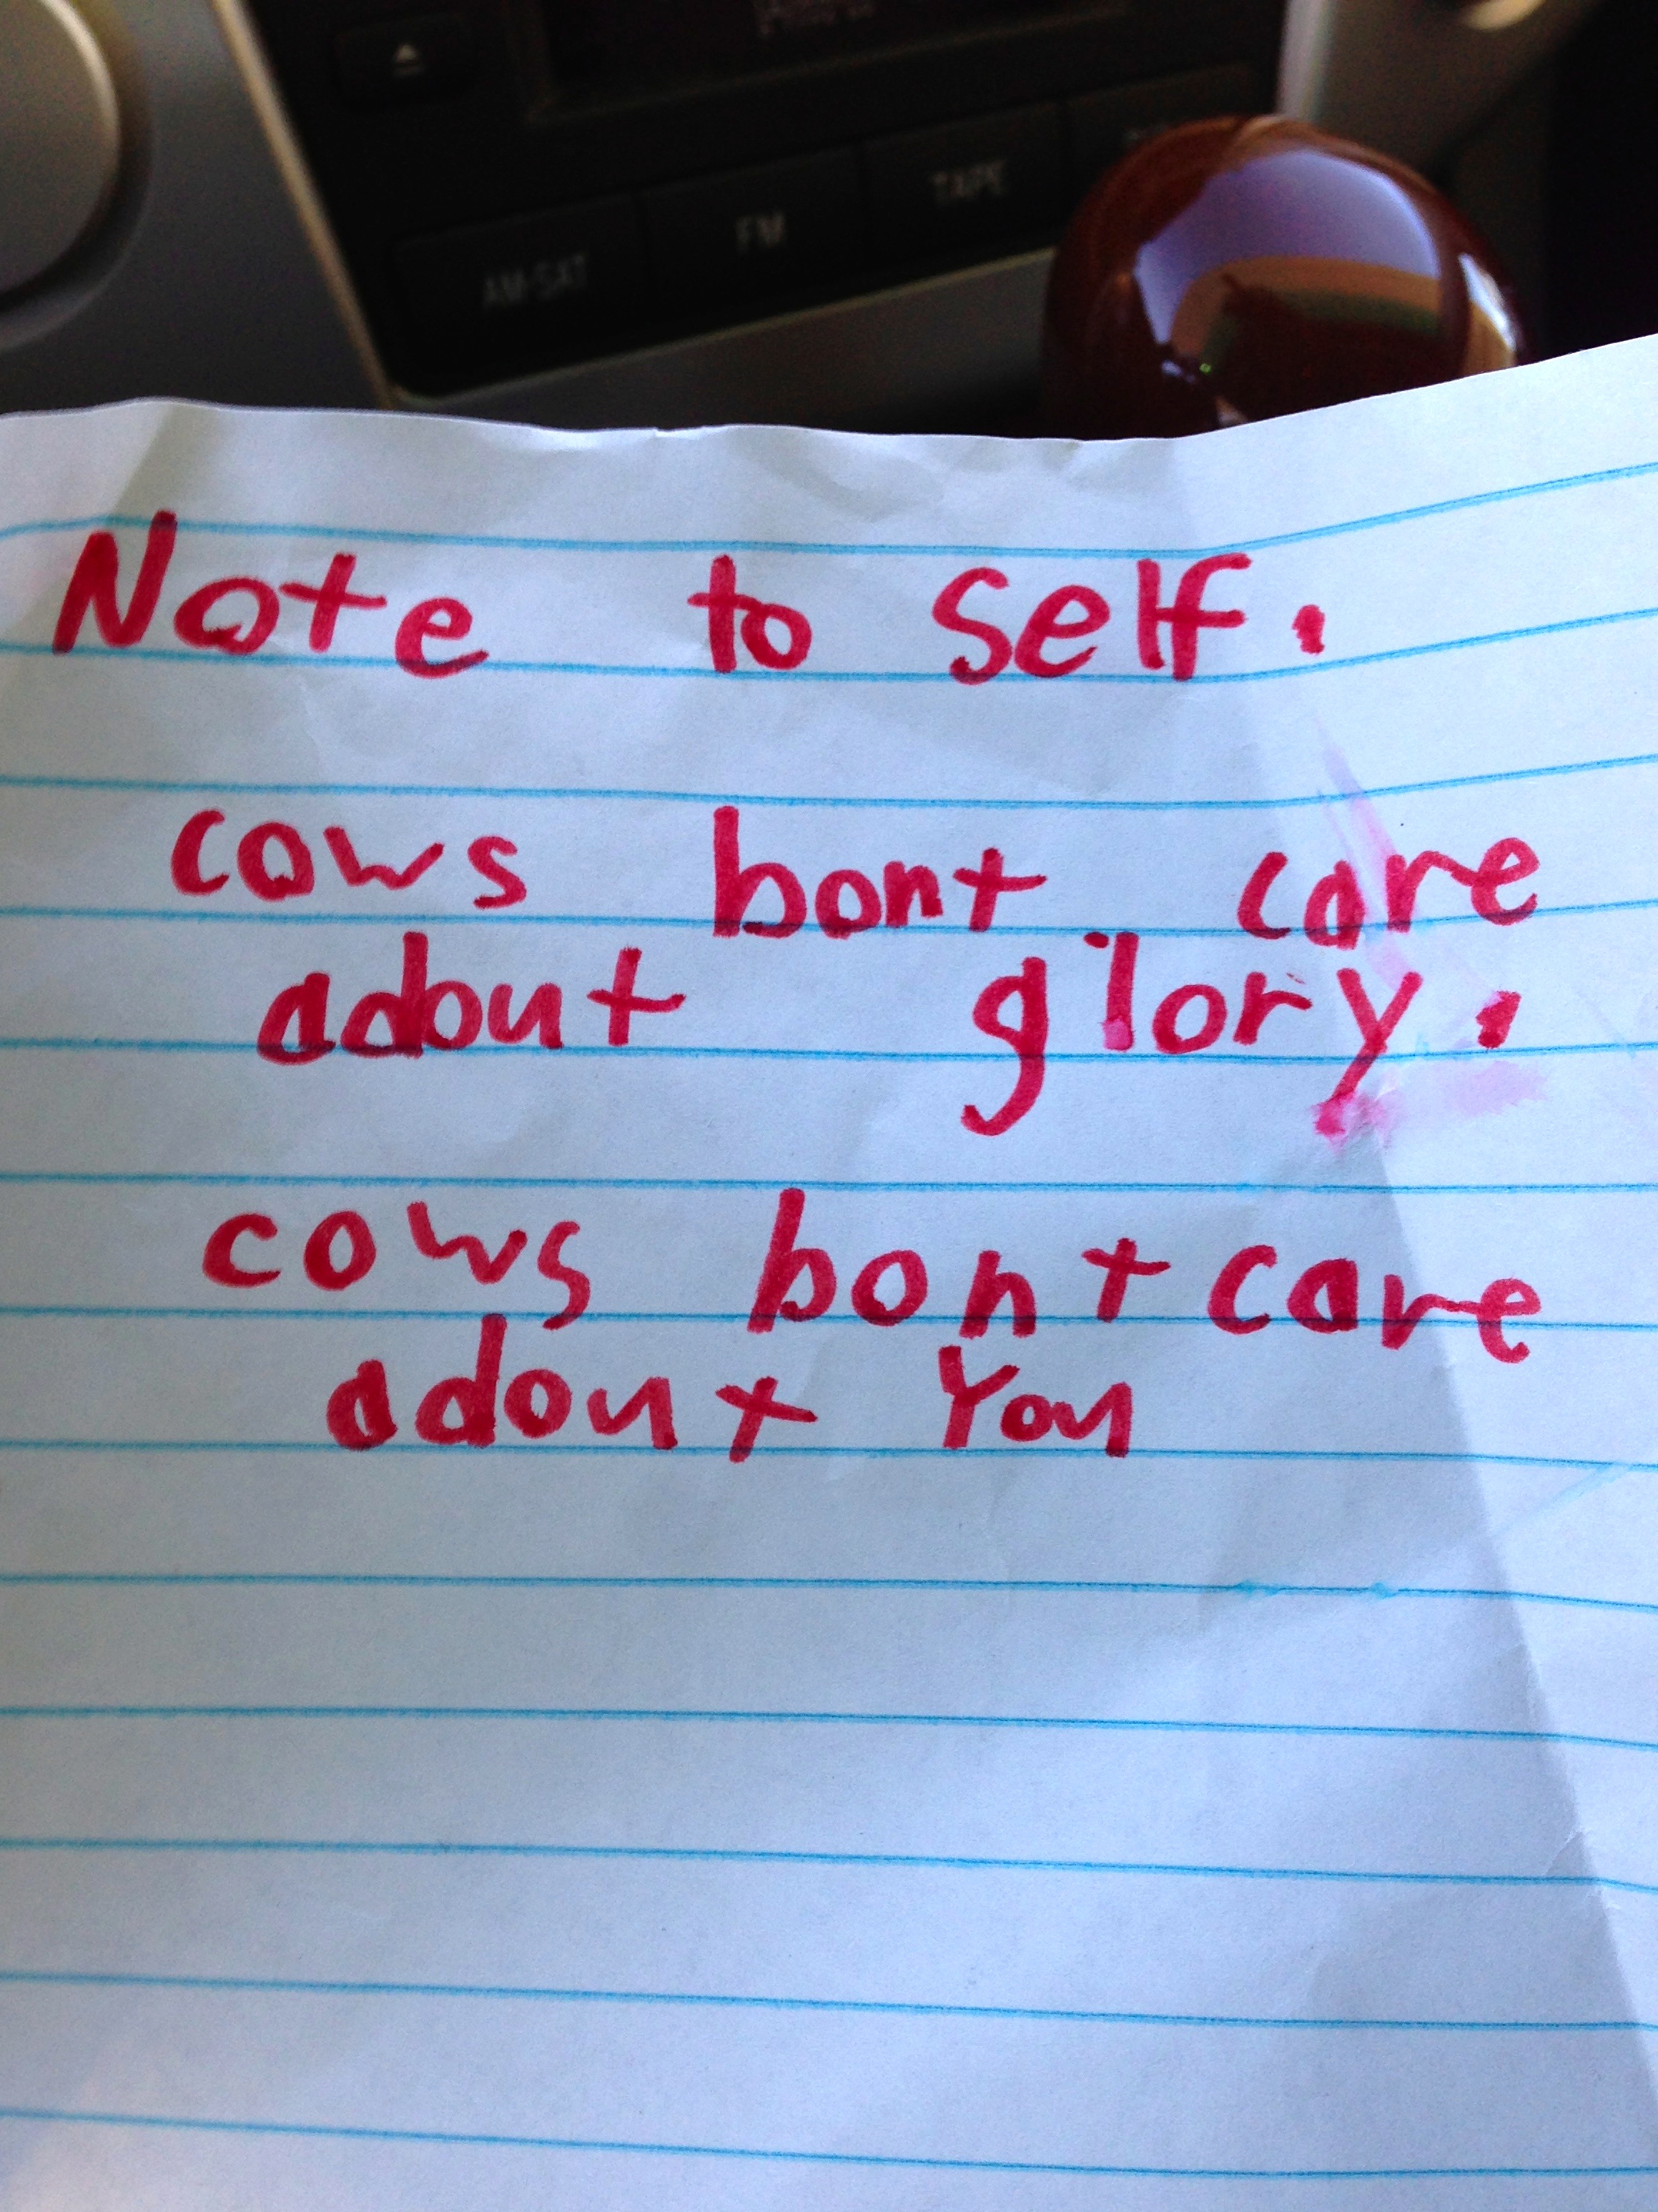 AM·SAT FM TAPE
Note to self.
cows bont care
adout glory.
cows bont care
adout You